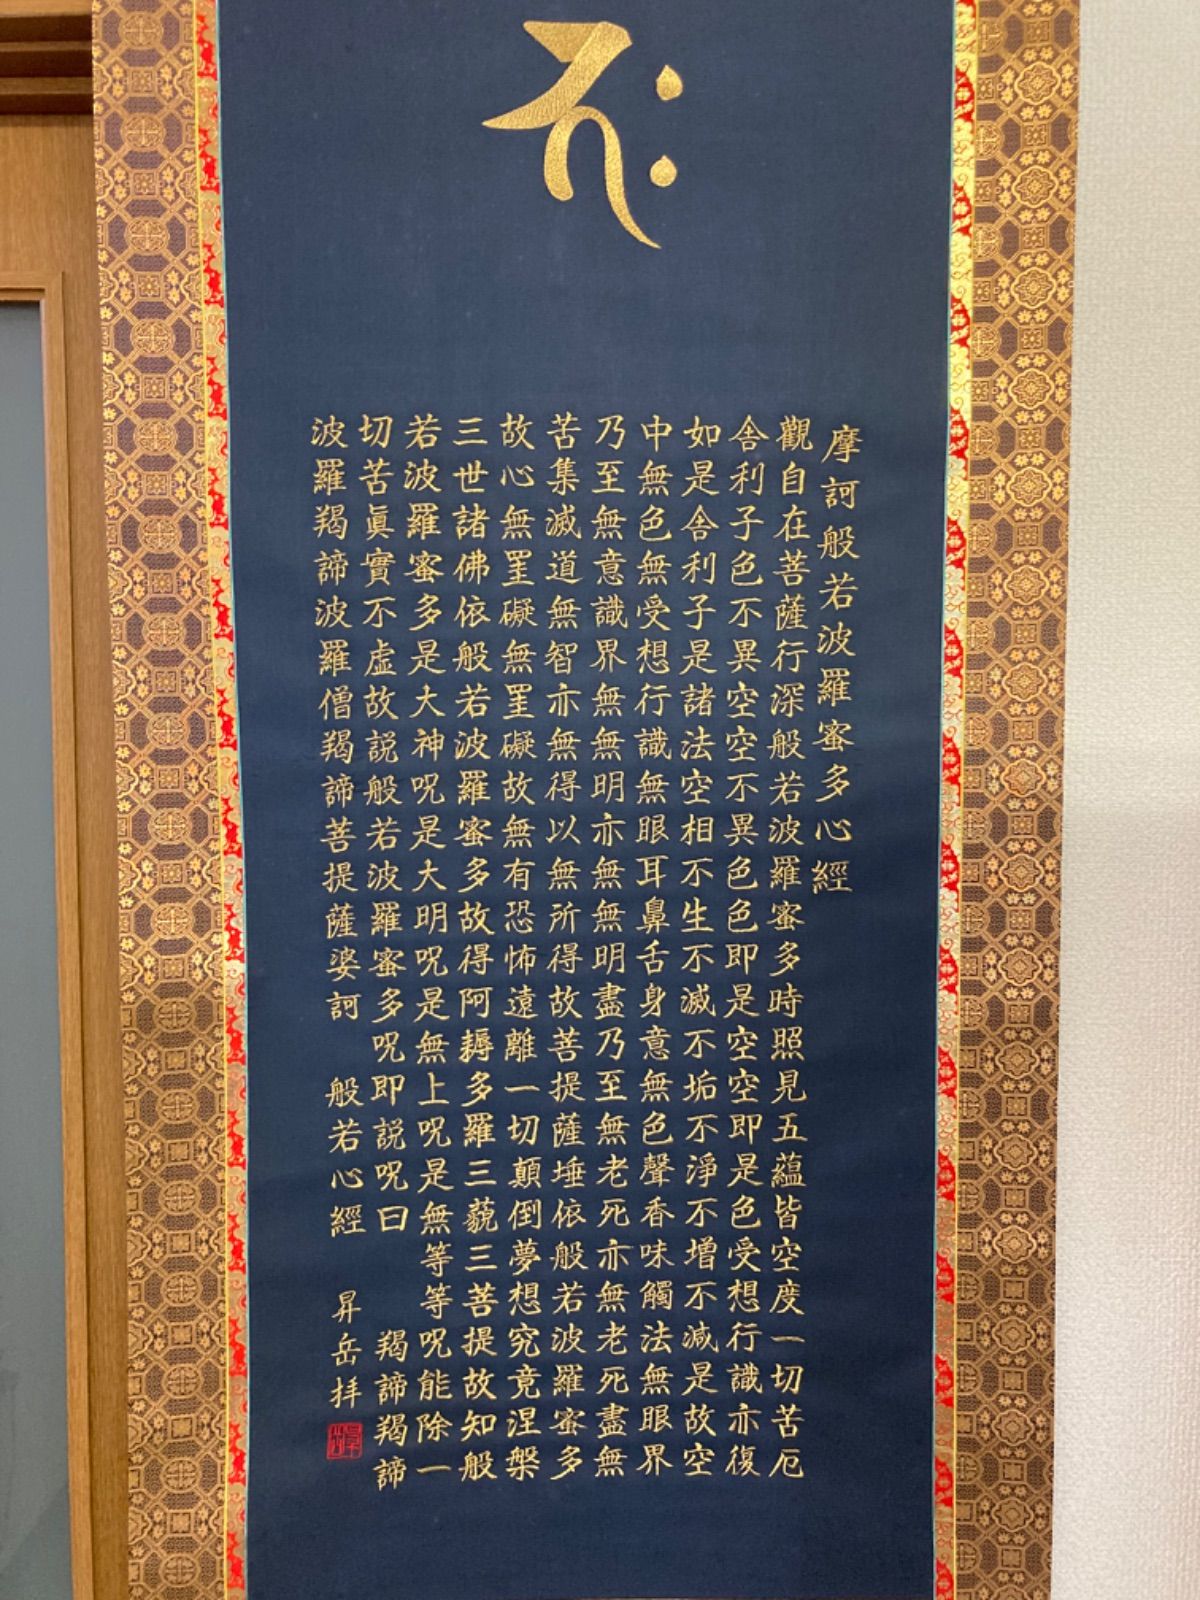 𑖮𑖿𑖨𑖱𑖾
摩訶般若波羅蜜多心經
觀自在菩薩行深般若波羅蜜多時照見五蘊皆空度一切苦厄
舎利子色不異空空不異色色即是空空即是色受想行識亦復
如是舎利子是諸法空相不生不滅不垢不淨不增不減是故空
中無色無受想行識無眼耳鼻舌身意無色聲香味觸法無眼界
乃至無意識界無無明亦無無明盡乃至無老死亦無老死盡無
苦集滅道無智亦無得以無所得故菩提薩埵依般若波羅蜜多
故心無罣礙無罣礙故無有恐怖遠離一切顛倒夢想究竟涅槃
三世諸佛依般若波羅蜜多故得阿耨多羅三藐三菩提故知般
若波羅蜜多是大神呪是大明呪是無上呪是無等等呪能除一
切苦眞實不虛故説般若波羅蜜多呪即説呪曰 羯諦羯諦
波羅羯諦波羅僧羯諦菩提薩婆訶 般若心經 昇岳拝